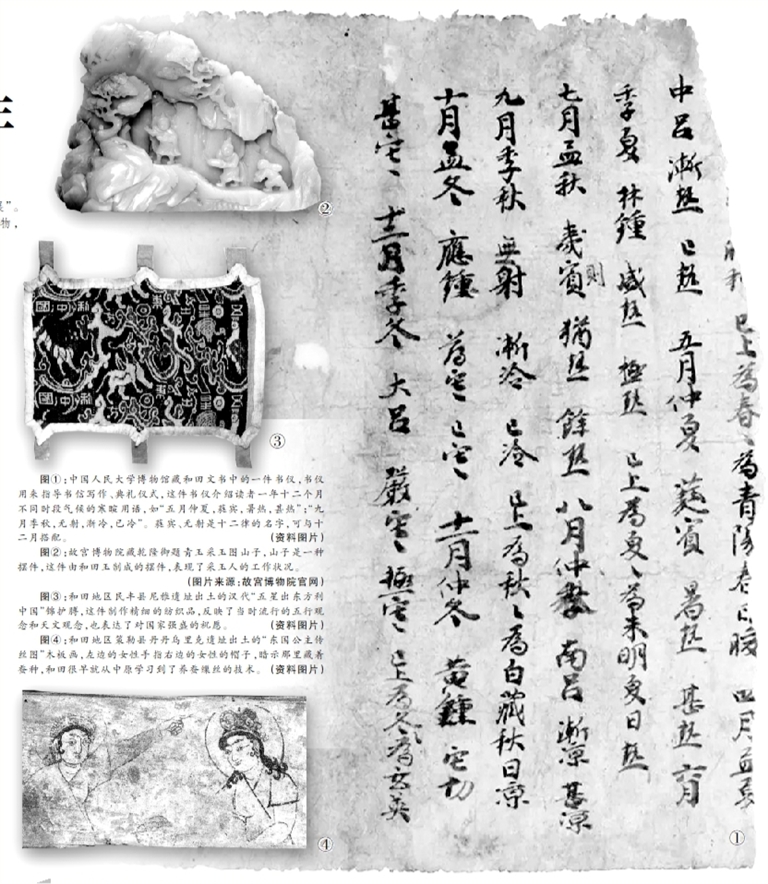 已上為春〻為青陽春日暖 四月孟夏
中呂 漸熱 已熱 五月仲夏 蕤賓 暑熱 甚熱 六月
季夏 林鍾 盛熱 極熱 已上為夏〻為朱明夏日熱
七月孟秋 夷賓則 猶熱 餘熱 八月仲秋 南呂 漸凉 甚凉
九月季秋 無射 漸冷 已冷 已上為秋〻為白藏秋日凉
十月孟冬 應鍾 薄寒 已寒 十一月仲冬 黃鍾 寒切
甚寒 十二月季冬 大呂 嚴寒 極寒 已上為冬為玄英
①
②
③
图①:中国人民大学博物馆藏和田文书中的一件书仪,书仪
用来指导书信写作、典礼仪式,这件书仪介绍读者一年十二个月
不同时段气候的寒暄用语,如“五月仲夏,蕤宾,暑热,甚热”;“九
月季秋,无射,渐冷,已冷”。蕤宾、无射是十二律的名字,可与十
二月搭配。 (资料图片)
图②:故宫博物院藏乾隆御题青玉采玉图山子,山子是一种
摆件,这件由和田玉制成的摆件,表现了采玉人的工作状况。
(图片来源:故宫博物院官网)
图③:和田地区民丰县尼雅遗址出土的汉代“五星出东方利
中国”锦护膊,这件制作精细的纺织品,反映了当时流行的五行观
念和天文观念,也表达了对国家强盛的祝愿。 (资料图片)
图④:和田地区策勒县丹丹乌里克遗址出土的“东国公主传
丝图”木板画,左边的女性手指右边的女性的帽子,暗示那里藏着
蚕种,和田很早就从中原学习到了养蚕缫丝的技术。 (资料图片)
④